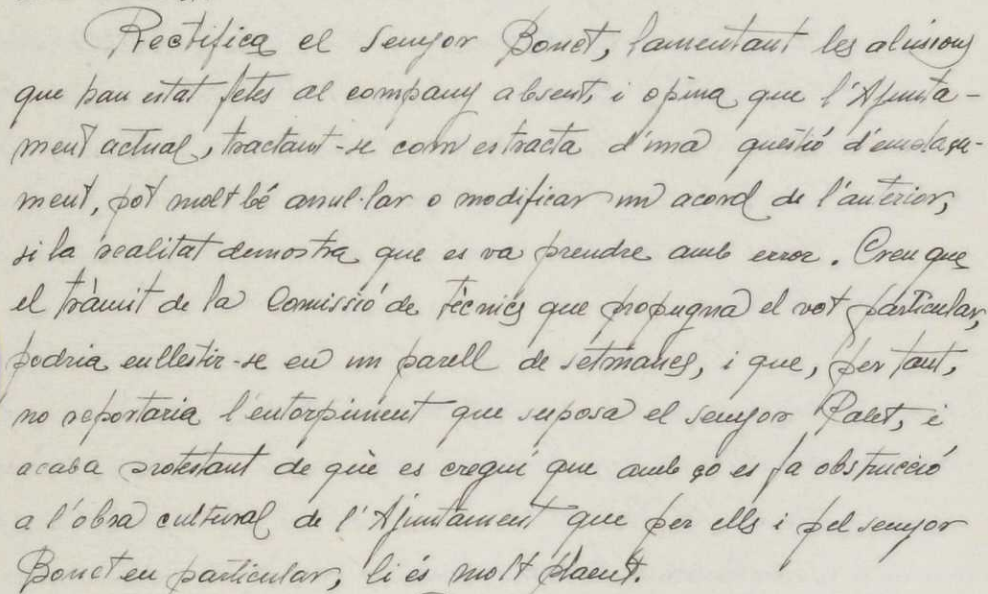 Rectifica el senyor Bonet, lamentant les alusions
que han estat fetes al company absent, i opina que l'Ajunta-
ment actual, tractant-se com es tracta d'una questió d'emplaça-
ment, pot molt bé anul·lar o modificar un acord de l'anterior,
si la realitat demostra que es va prendre amb error. Creu que
el tràmit de la Comissió de tècnics que propugna el vot particular,
podria enllestir-se en un parell de setmanes, i que, per tant,
no reportaria l'entorpiment que suposa el senyor Palet, i
acaba protestant de què es cregui que amb ço es fa obstrucció
a l'obra cultural de l'Ajuntament que per ells i pel senyor
Bonet en particular, li és molt plaent.